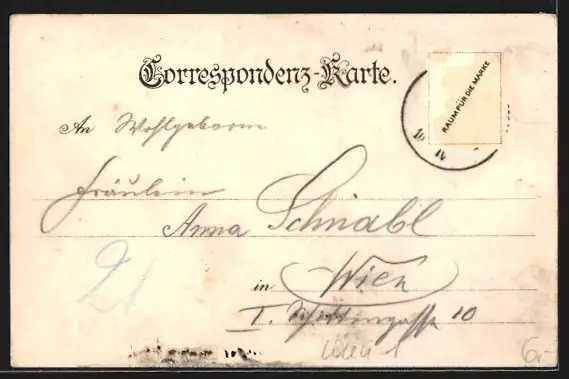 Correspondenz-Karte.
RAUM FÜR DIE MARKE
An Wohlgeboren
Fräulein
Anna Schnabl
in Wien
I. Schottengasse 10
21
Wien 1
6,-